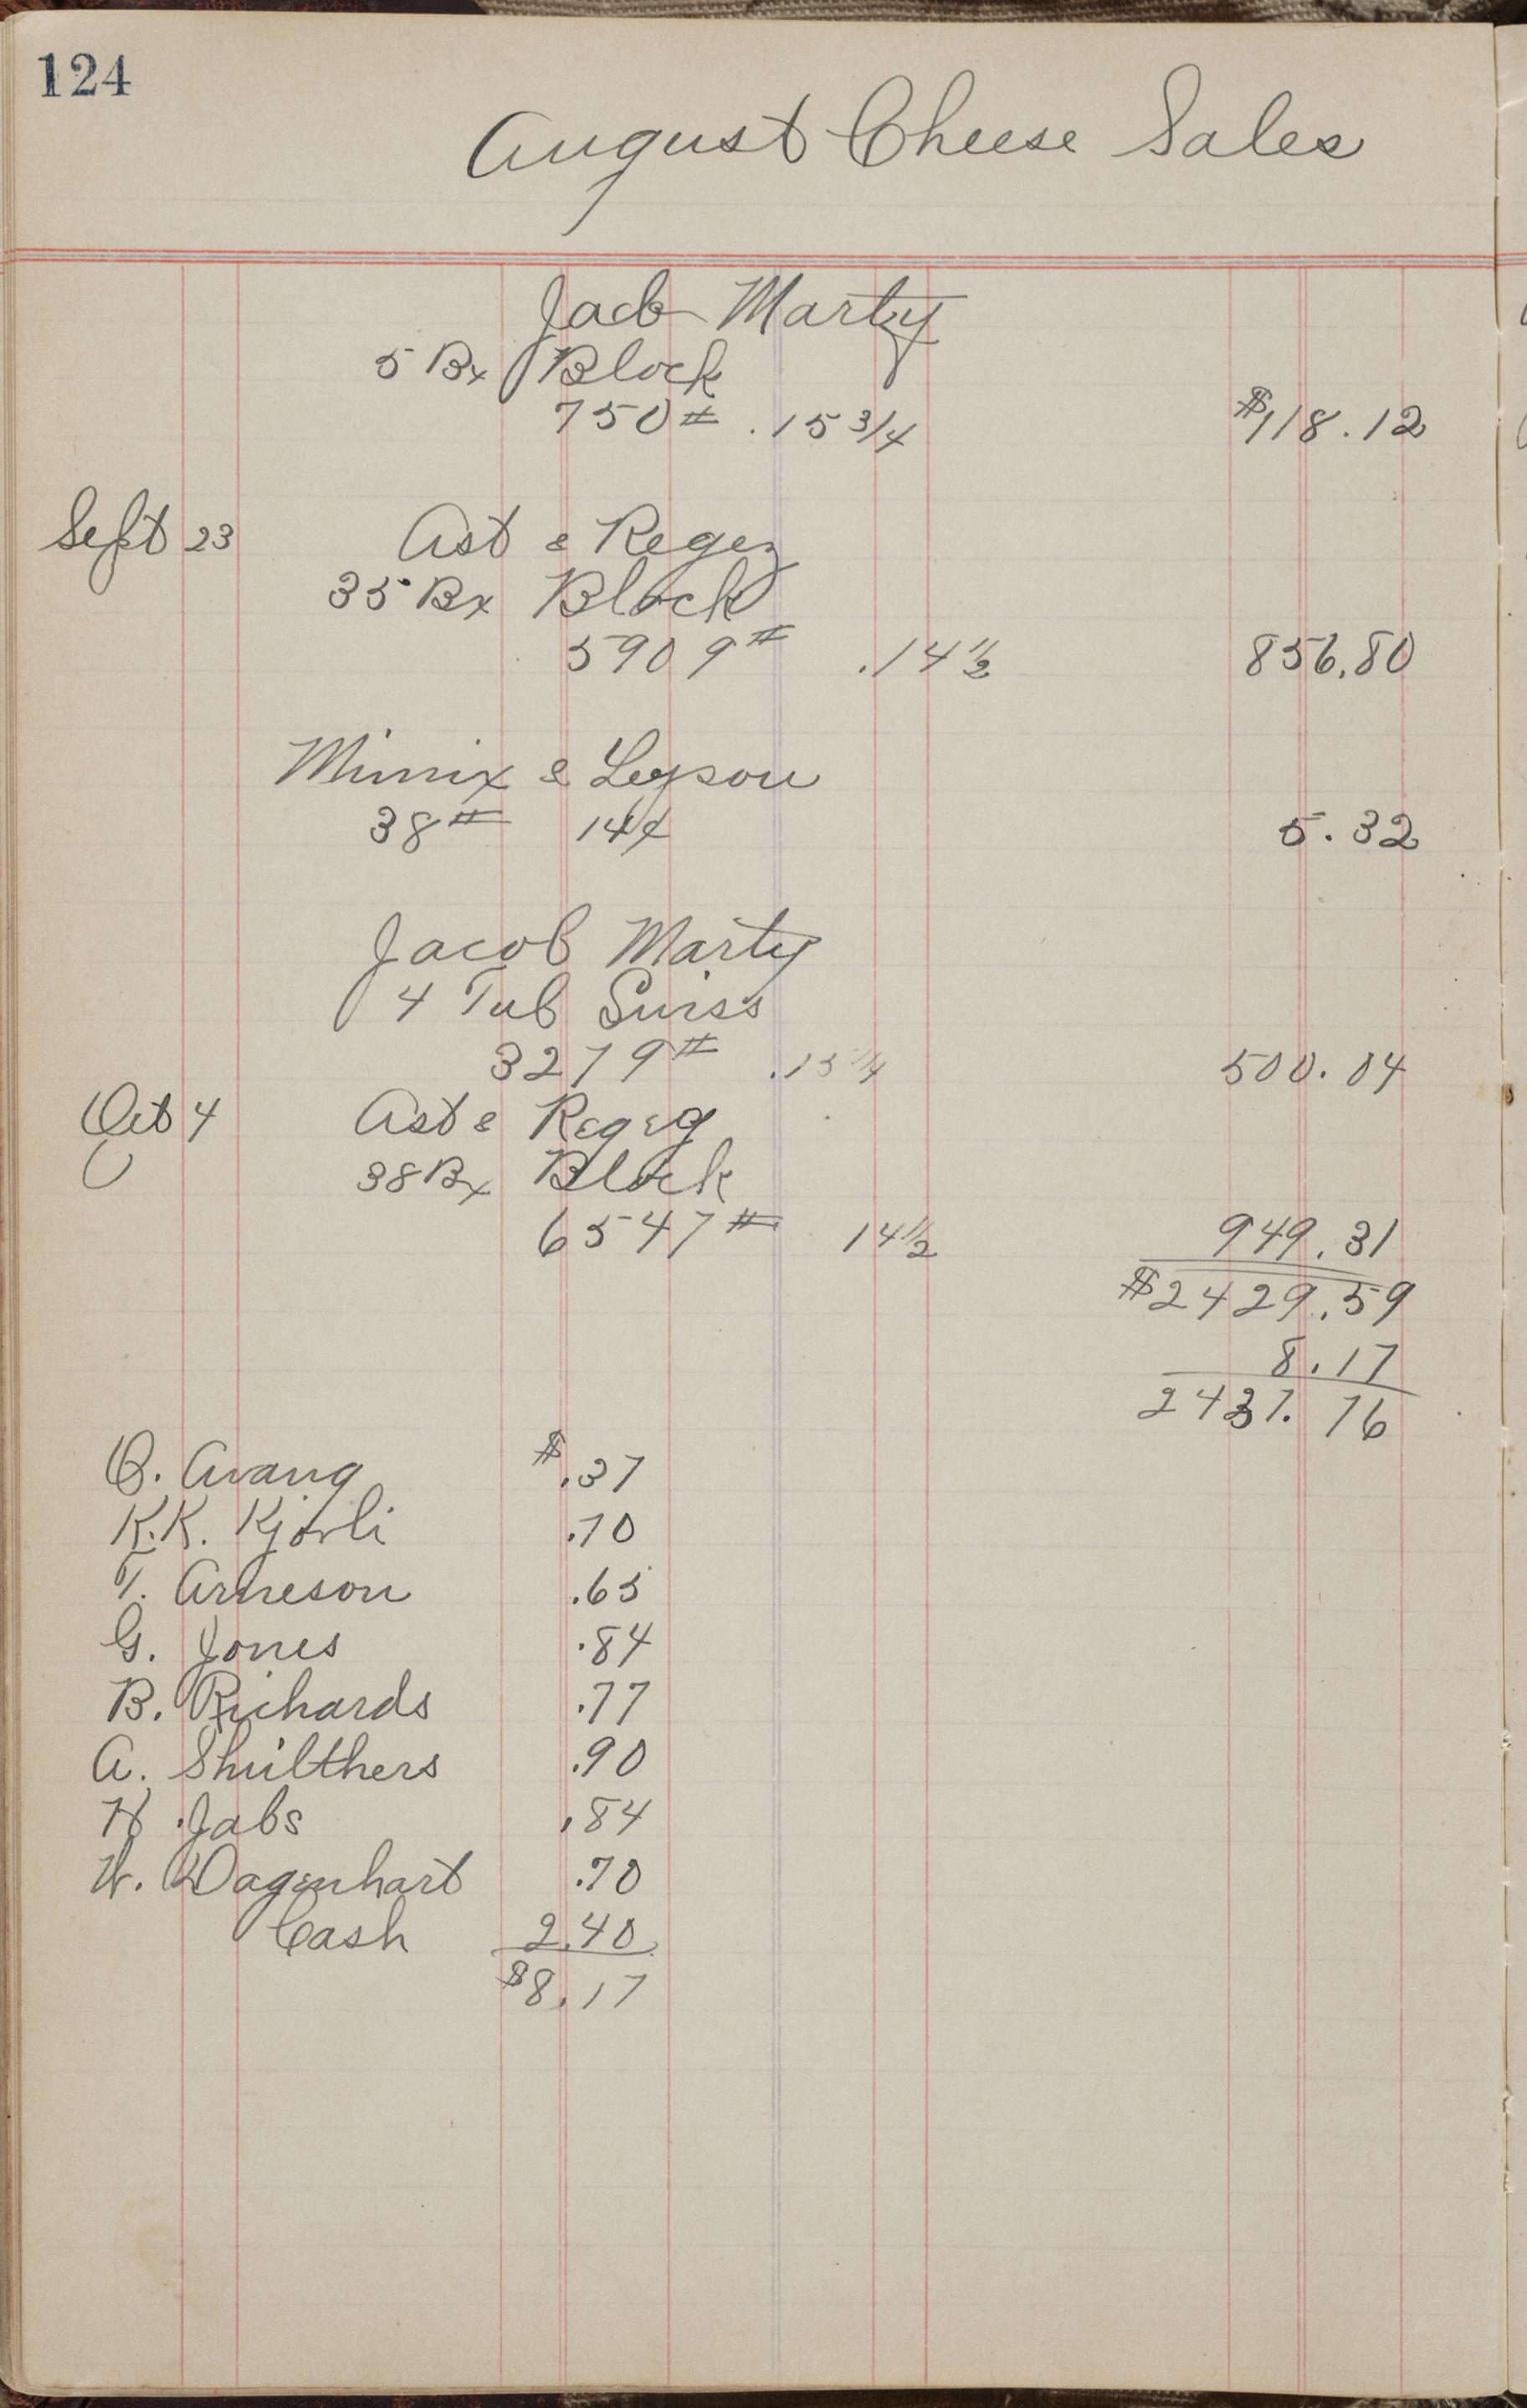 124
August Cheese Sales
Jacob Marty
5 Bx Block
750# .15 3/4 $118.12
Sept 23 Ast & Regez
35 Bx Block
5909# .14 1/2 856.80
& Leyson
38# 14¢ 5.32
Jacob Marty
4 Tub Swiss
3279# .15 1/4 500.04
Oct 4 Ast & Regez
38 Bx Block
6547# 14 1/2 949.31
$2429.59
8.17
2437.76
O. Avang $.37
K.K. Kjorli .70
T. Arneson .65
G. Jones .84
B. Richards .77
A. Shulthers .90
H. Jabs .84
W. Dagenhart .70
Cash 2.40
$8.17